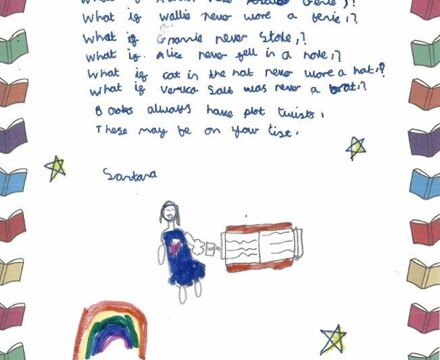 What if
What if Wallis never wore a
What if Grannie never Stole,?
What if. Alice never fell in a hole,?
What if cat in the hat never wore a hat,?
What if Veruca Salt was never a brat,?
Books always have plot twists.
These may be on your list.
Santana